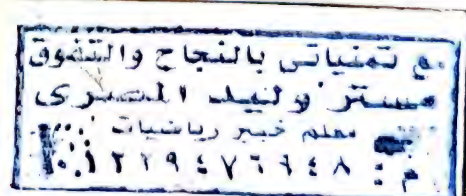 مع تمنياتى بالنجاح والتفوق
مستر وليد المصرى
معلم خبير رياضيات
م: ٠١٢٢٩٤٧٦٦٤٨